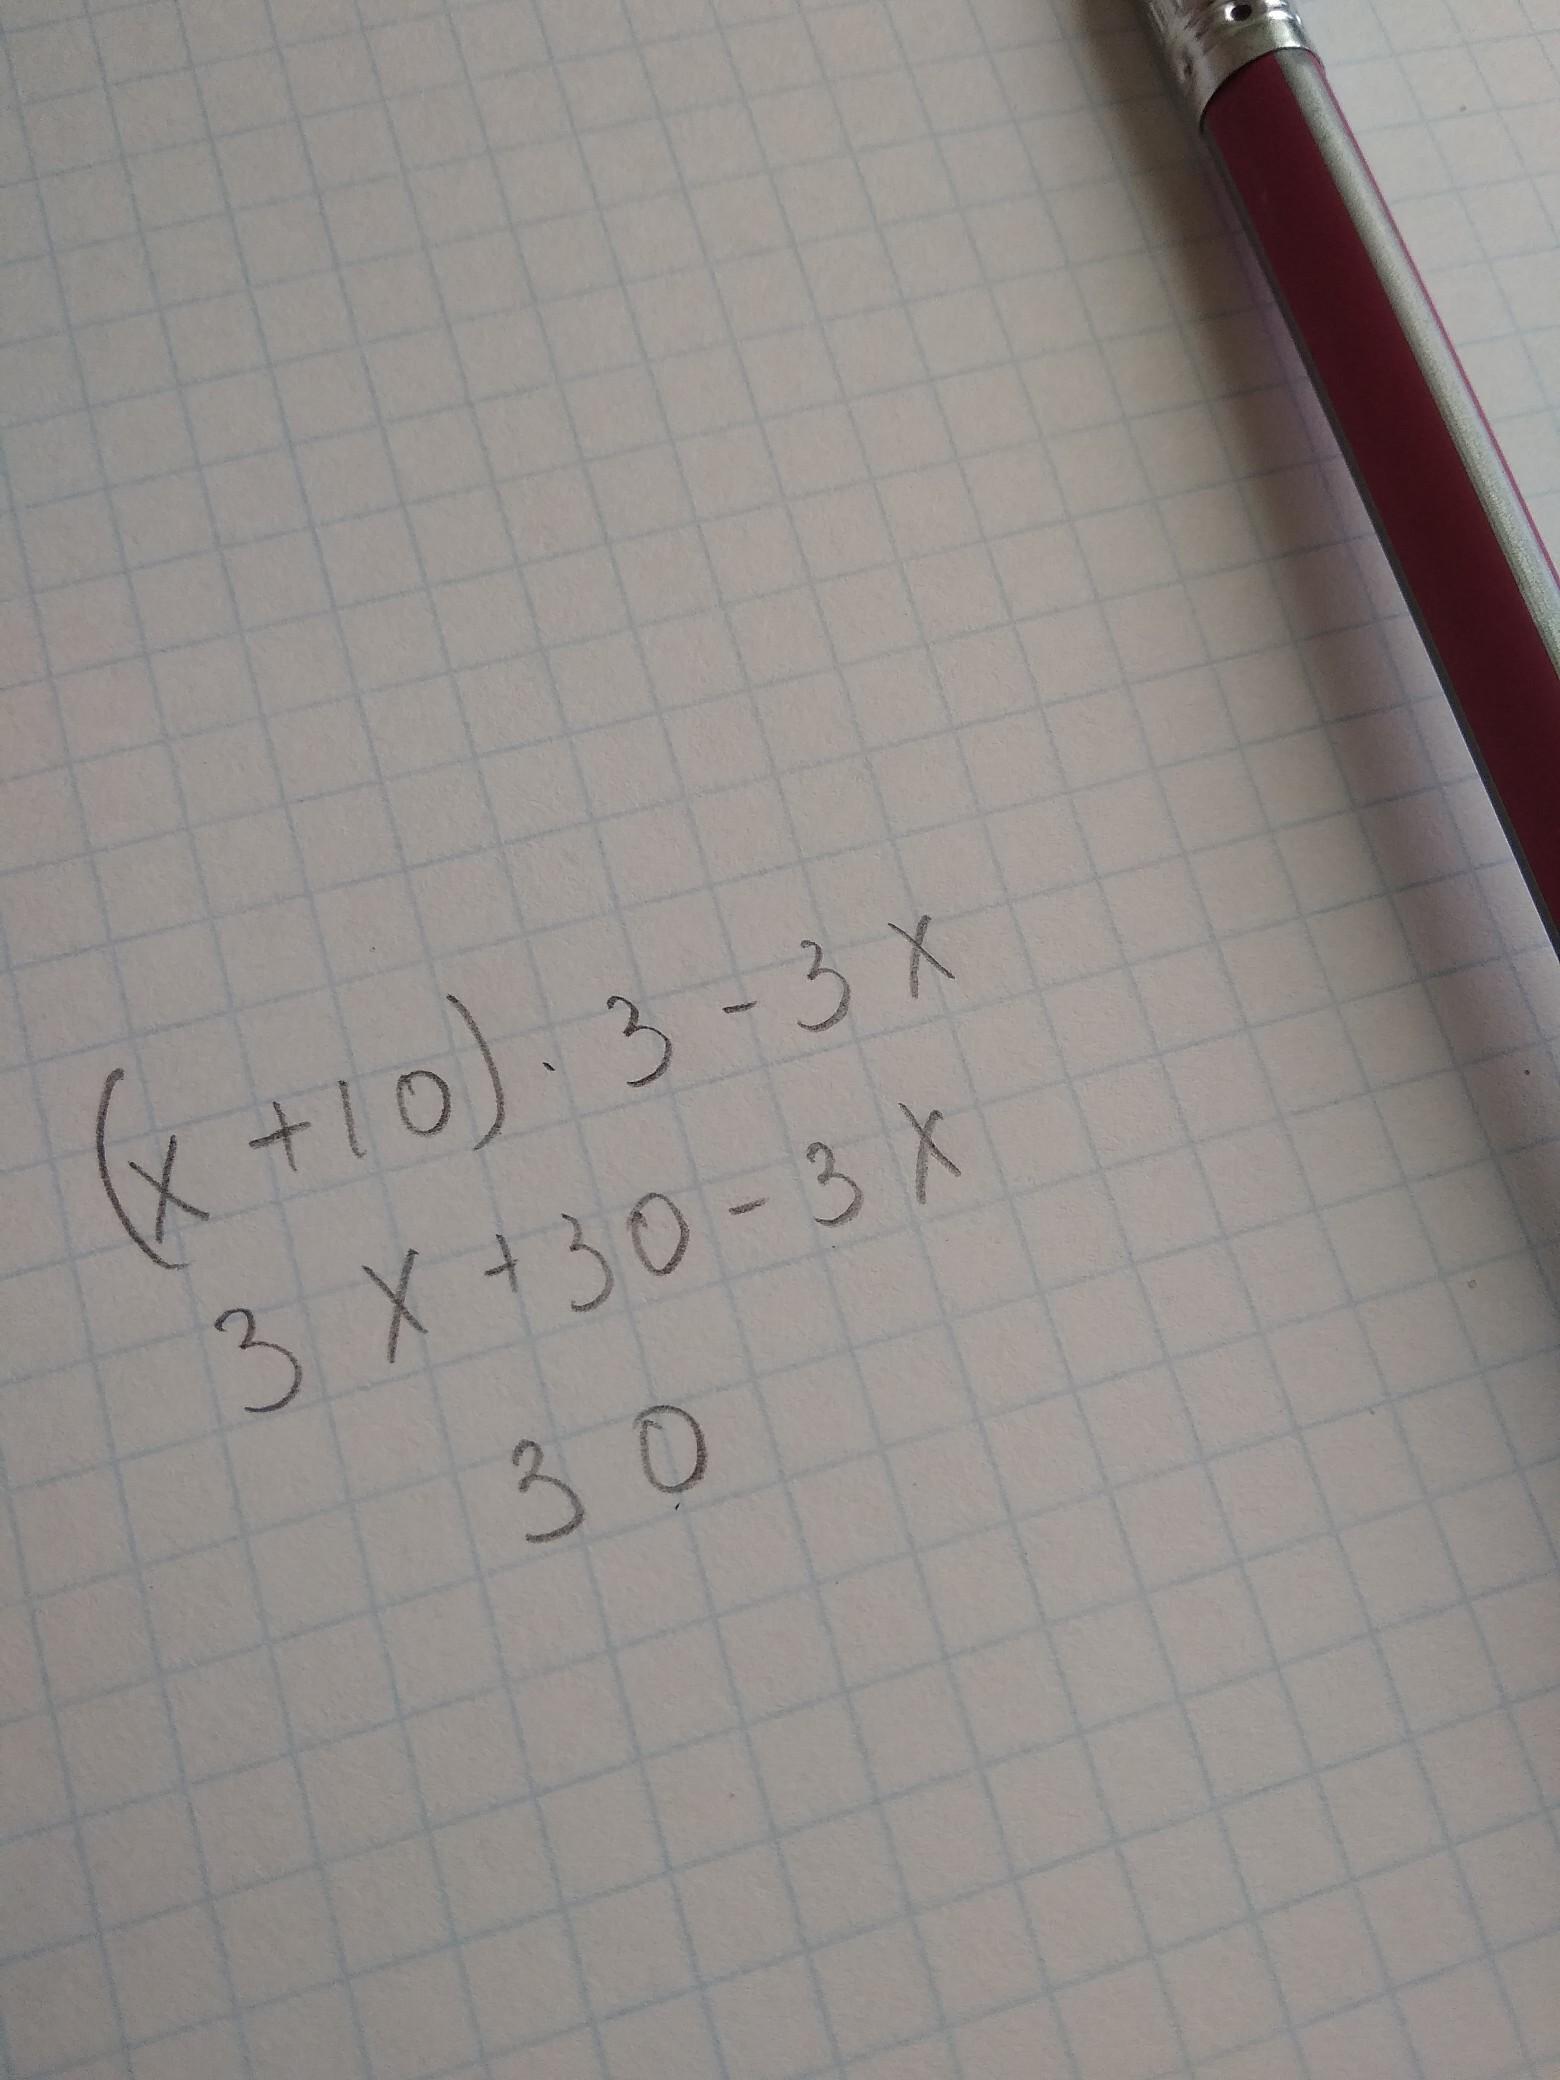 (x+10)·3-3x
3x+30-3x
30